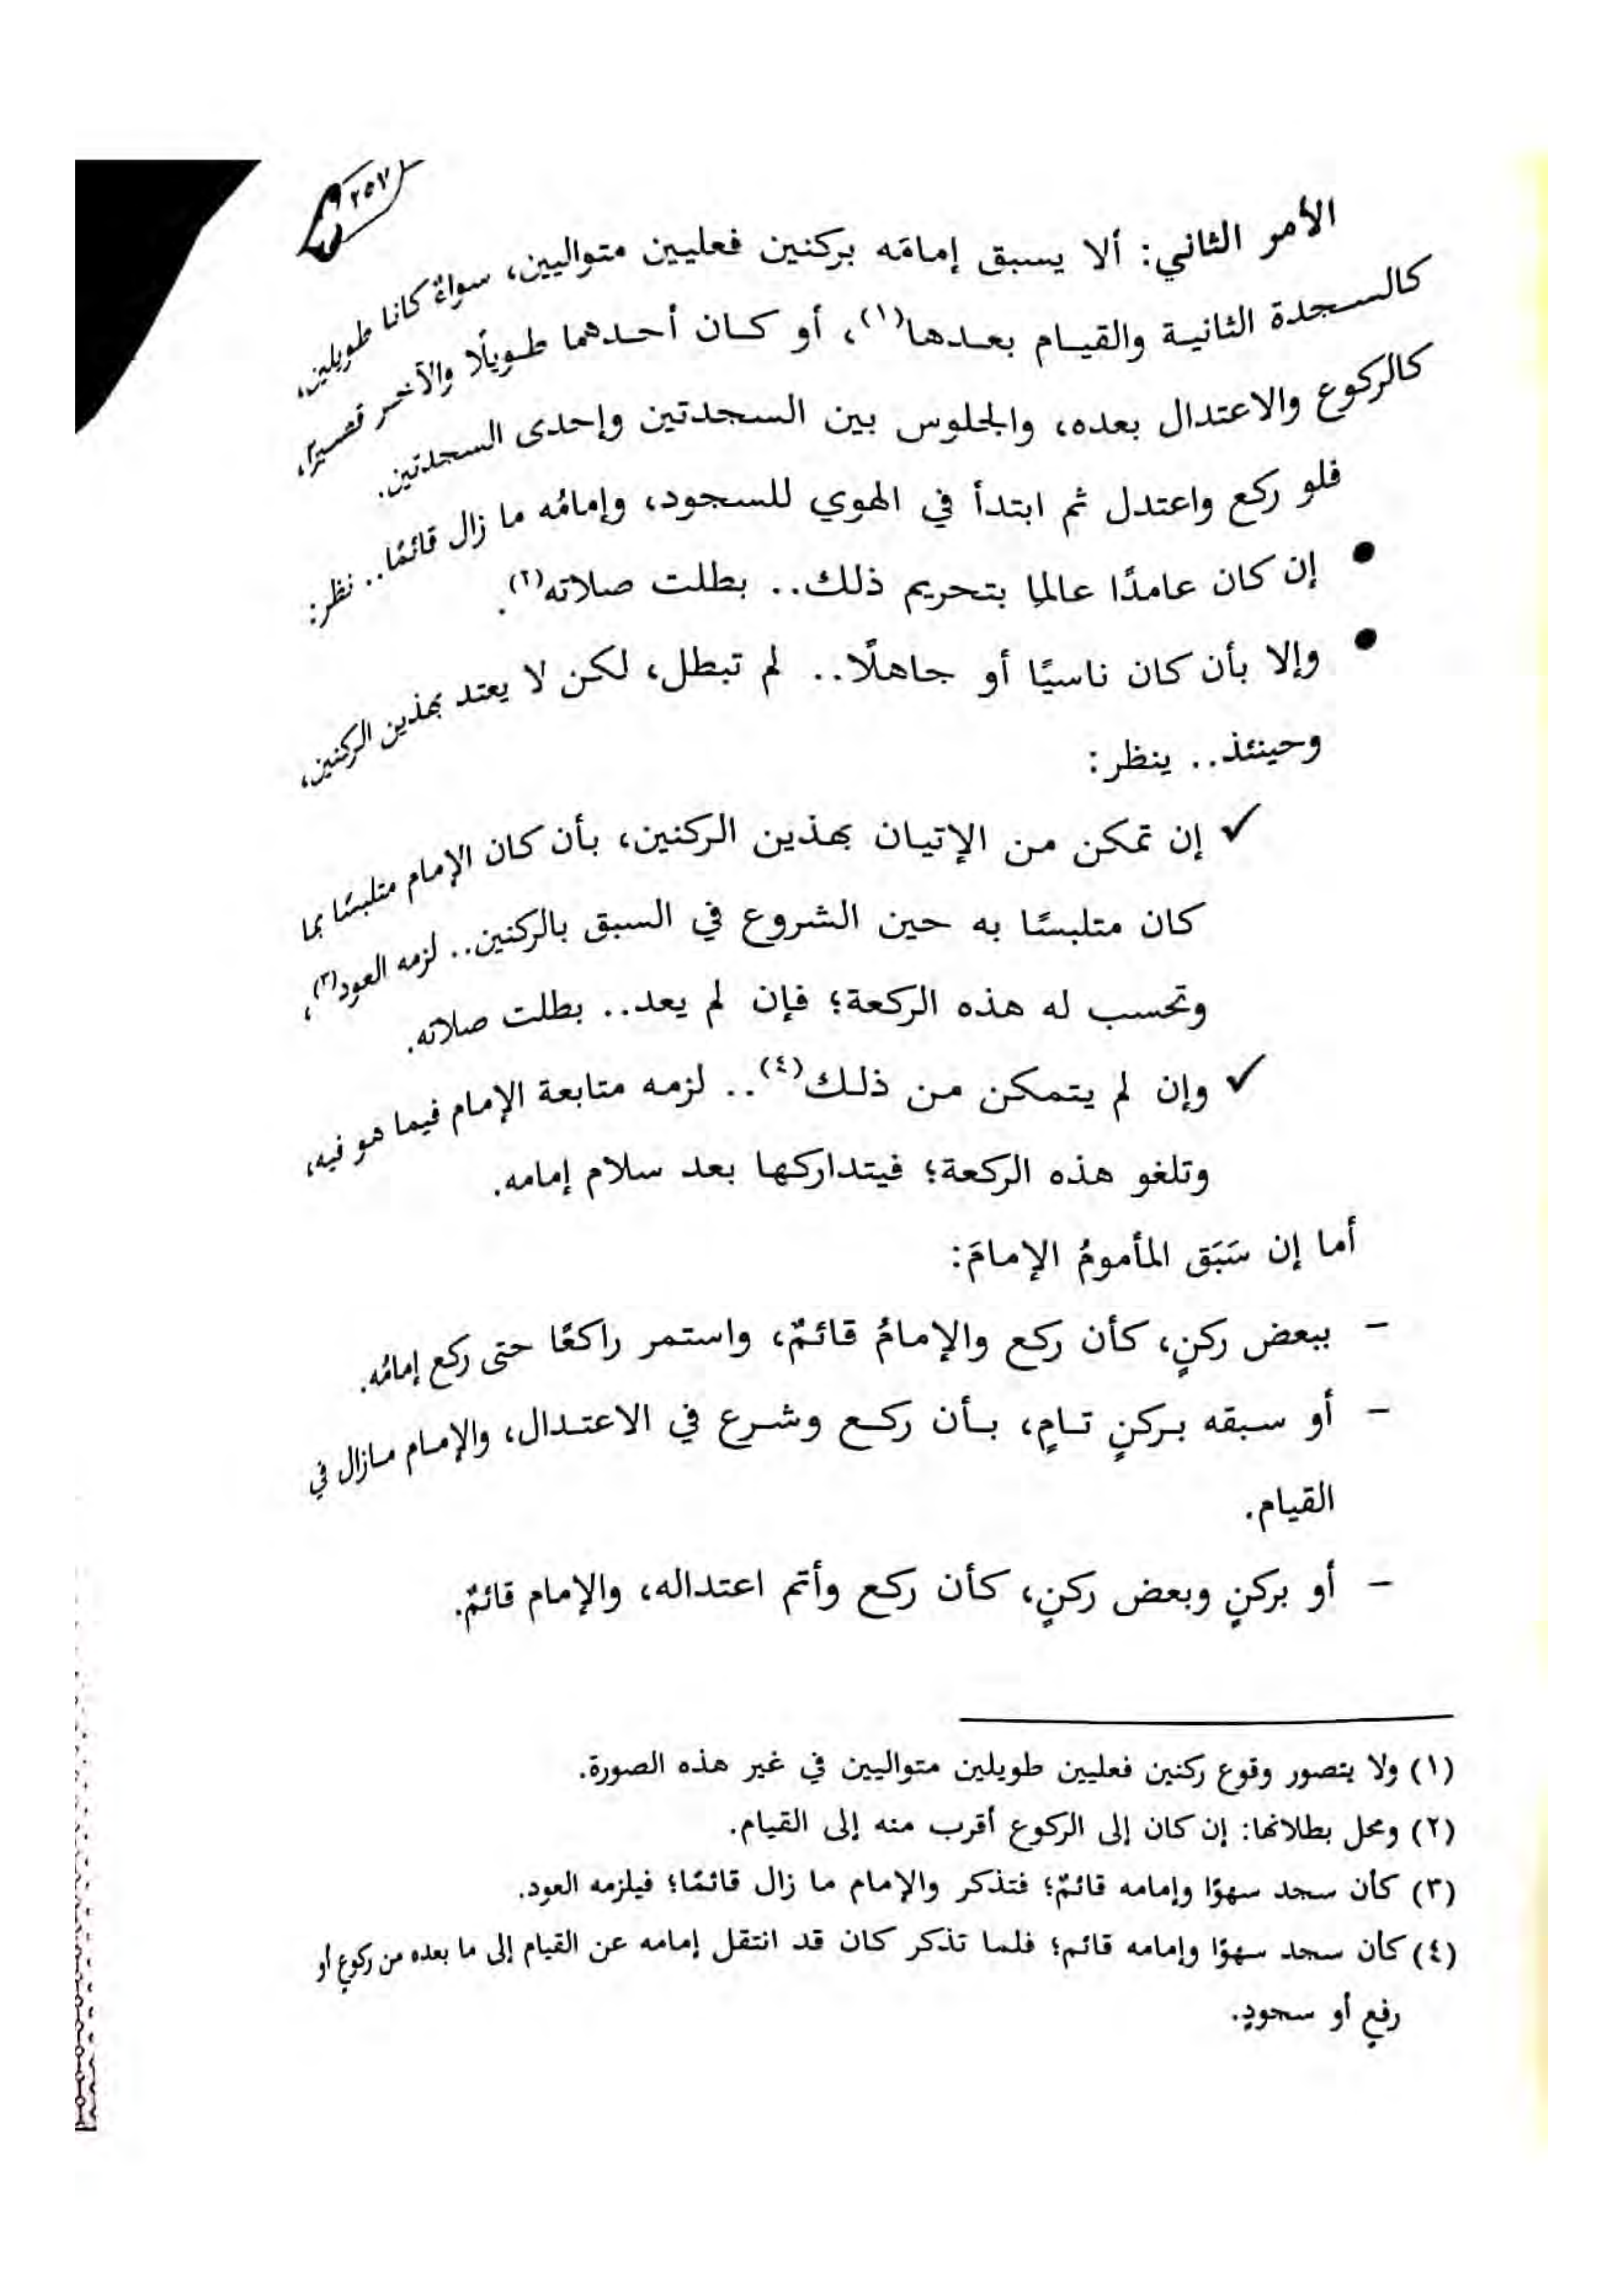 ٢٥٧
الأمر الثاني: ألا يسبق إمامَه بركنين فعليين متواليين، سواءٌ كانا طويلين،
كالسجدة الثانية والقيام بعدها(١)، أو كان أحدهما طويلًا والآخر قصيرًا،
كالركوع والاعتدال بعده، والجلوس بين السجدتين وإحدى السجدتين.
فلو ركع واعتدل ثم ابتدأ في الهوي للسجود، وإمامُه ما زال قائمًا.. نظر:
● إن كان عامدًا عالمِا بتحريم ذلك.. بطلت صلاته(٢).
● وإلا بأن كان ناسيًا أو جاهلًا.. لم تبطل، لكن لا يعتد بهذين الركنين،
وحينئذ.. ينظر:
✓ إن تمكن من الإتيان بهذين الركنين، بأن كان الإمام متلبسًا بما
كان متلبسًا به حين الشروع في السبق بالركنين.. لزمه العود(٣)،
وتحسب له هذه الركعة؛ فإن لم يعد.. بطلت صلاته.
✓ وإن لم يتمكن من ذلك(٤).. لزمه متابعة الإمام فيما هو فيه،
وتلغو هذه الركعة؛ فيتداركها بعد سلام إمامه.
أما إن سَبَق المأمومُ الإمامَ:
- ببعض ركنٍ، كأن ركع والإمامُ قائمٌ، واستمر راكعًا حتى ركع إمامُه.
- أو سبقه بركنٍ تامٍ، بأن ركع وشرع في الاعتدال، والإمام مازال في
القيام.
- أو بركنٍ وبعض ركنٍ، كأن ركع وأتم اعتداله، والإمام قائمٌ.
(١) ولا يتصور وقوع ركنين فعليين طويلين متواليين في غير هذه الصورة.
(٢) ومحل بطلانها: إن كان إلى الركوع أقرب منه إلى القيام.
(٣) كأن سجد سهوًا وإمامه قائمٌ؛ فتذكر والإمام ما زال قائمًا؛ فيلزمه العود.
(٤) كأن سجد سهوًا وإمامه قائم؛ فلما تذكر كان قد انتقل إمامه عن القيام إلى ما بعده من ركوعٍ أو
رفعٍ أو سجودٍ.